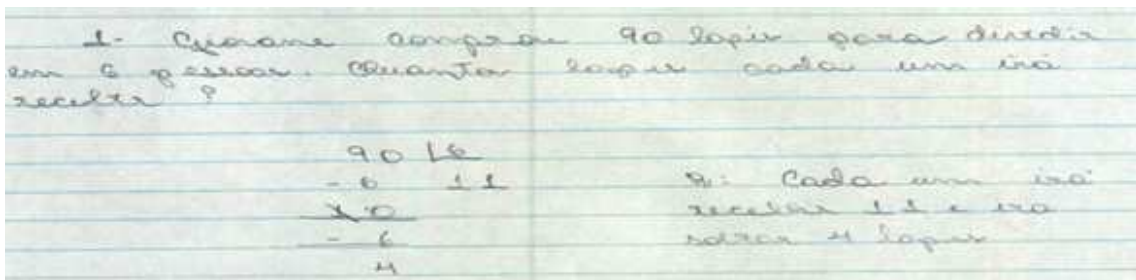 1- Cyorane comprou 90 lapis para dividir
em 6 pessoas. Quantos lapis cada um irá
receber ?
90 L6
- 6 11
10
- 6
4
R: Cada um irá
receber 11 e irá
sobrar 4 lapis